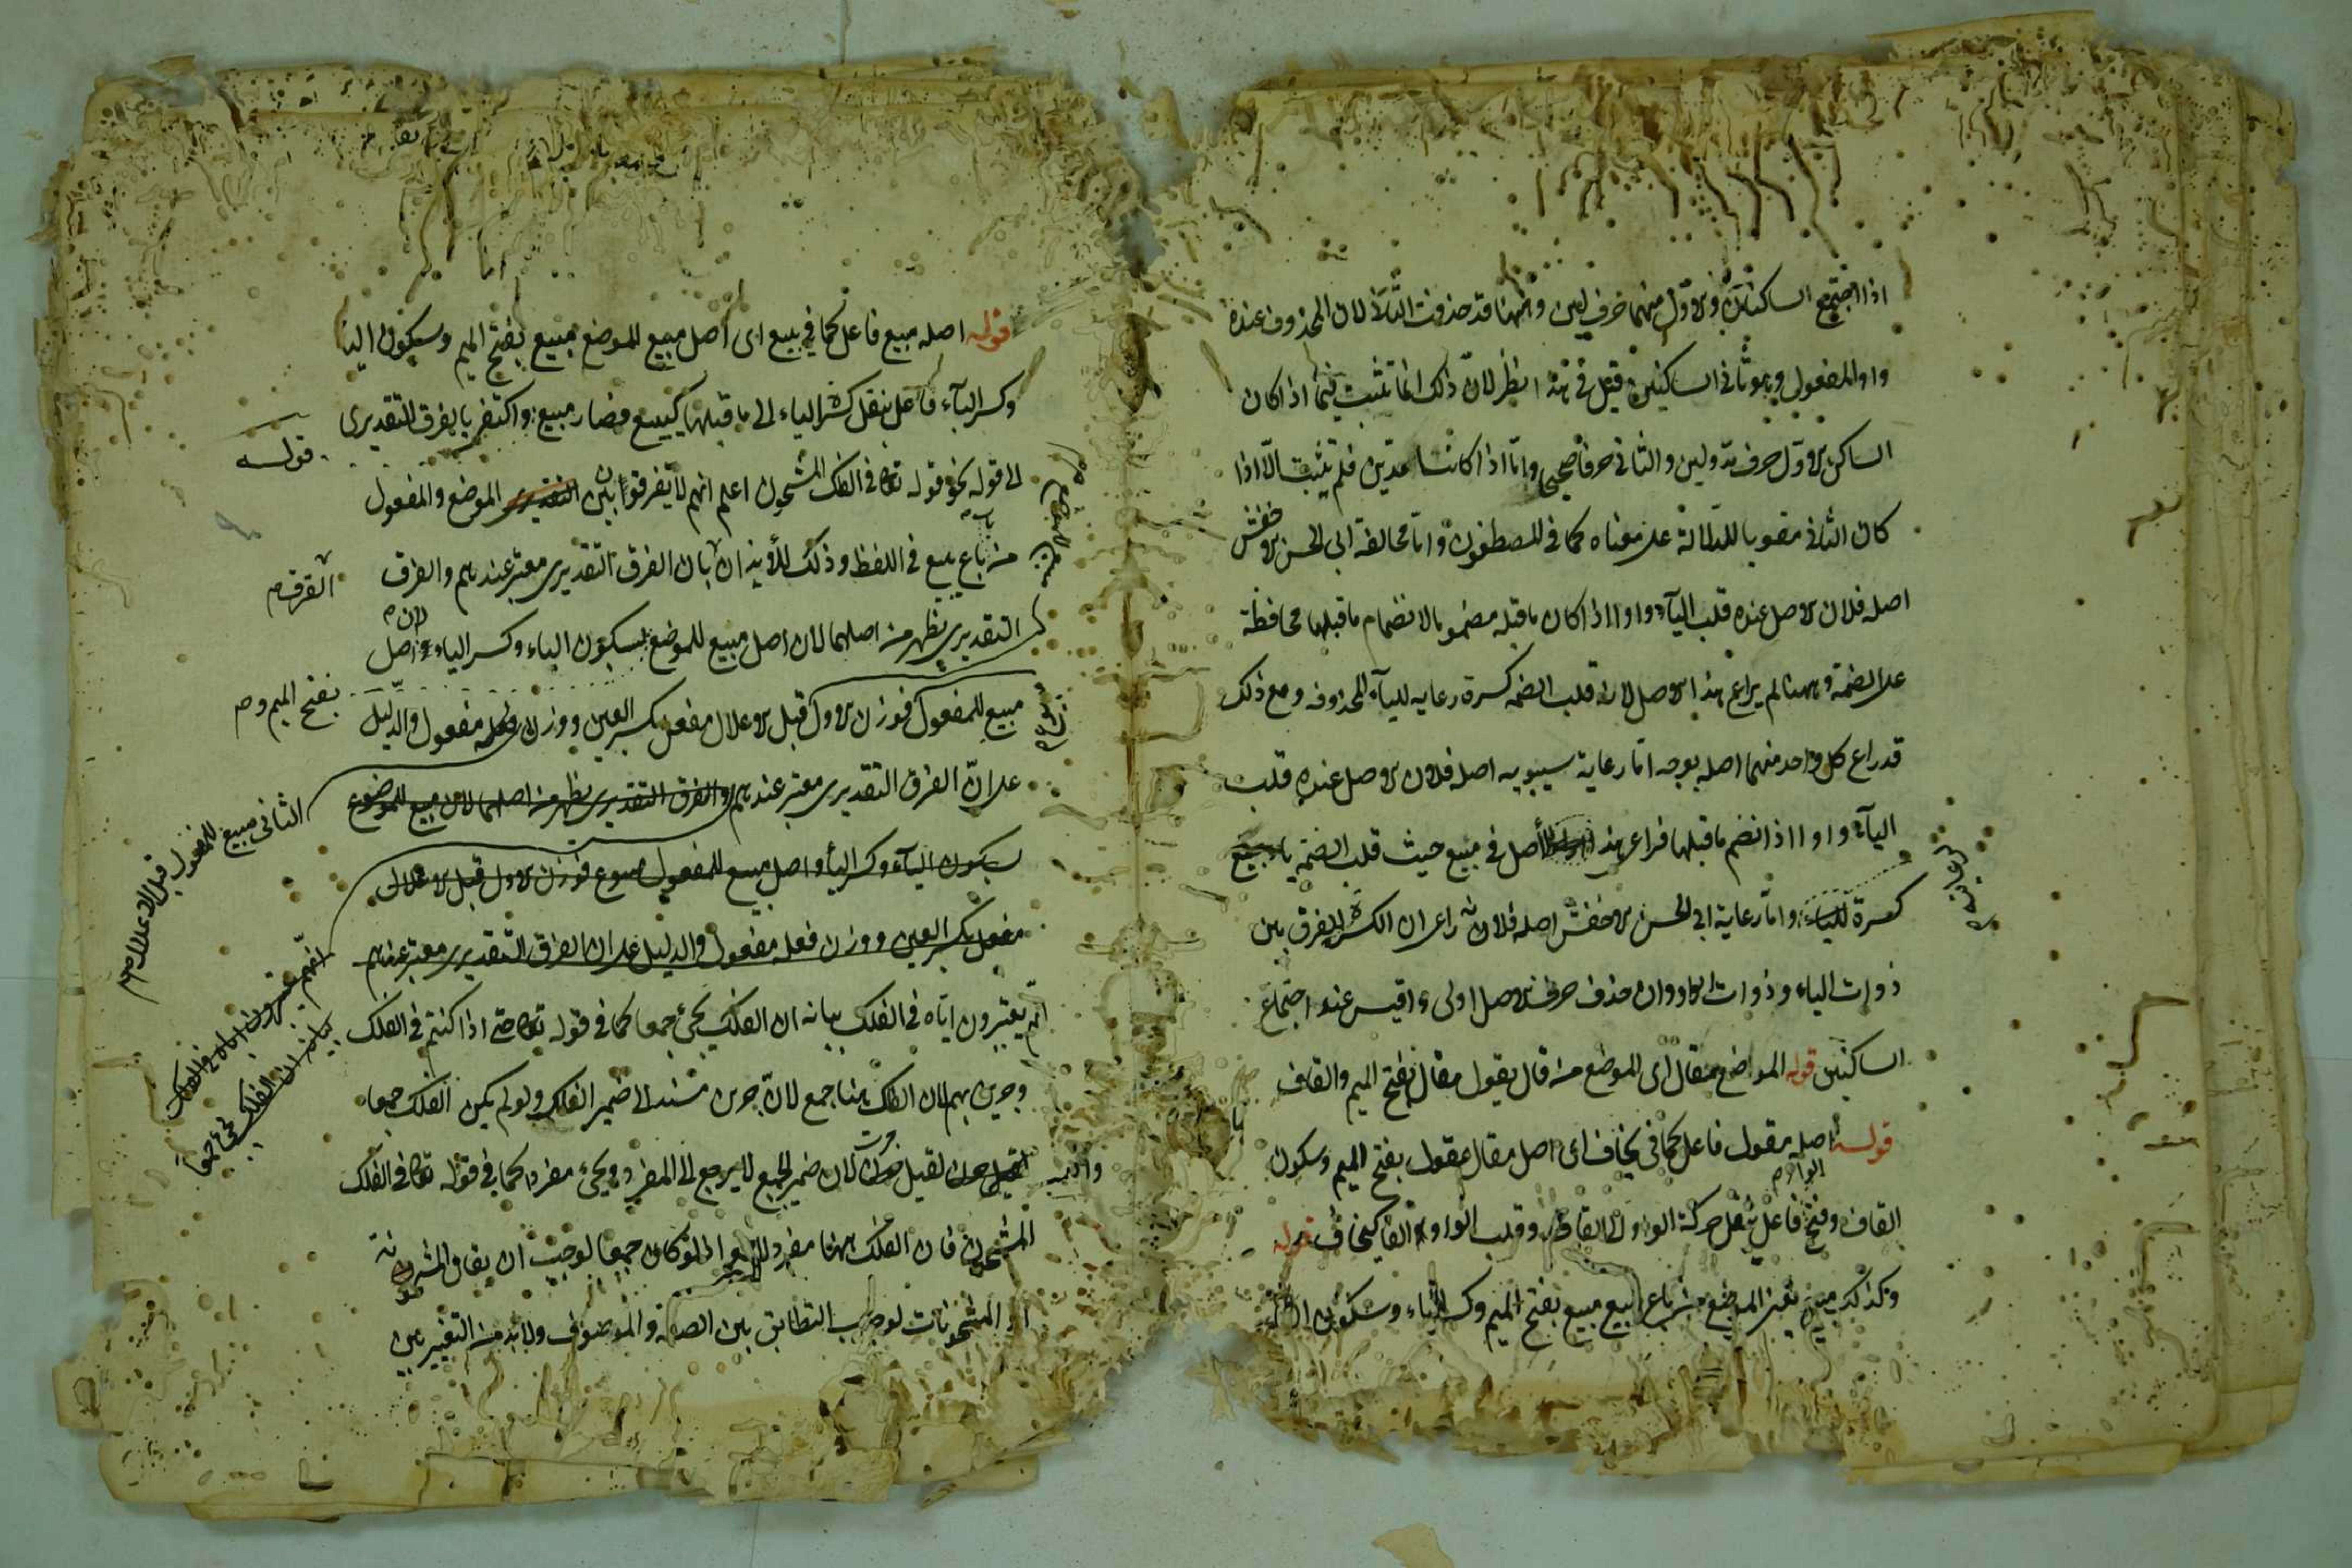 اذا اجتمع الساكنان والاول منهما حرف لين وههنا قد حذفت الثاني لان المحذوف عنده
واو المفعول وهو ثاني الساكنين قيل في هذا نظر لان ذلك انما تثبت فيما اذا كان
الساكن الاول حرف مد ولين والثاني حرفا صحيحا واما اذا كانتا مدتين فلم يثبت الا اذا
كان الثاني للدلالة على معناه كما في المصطفون واما مخالفة ابي الحسن الاخفش
اصله فلان الاصل عنده قلب الياء واوا اذا كان ما قبله مضموما لانضمام ما قبلها محافظة
على الضمة وههنا لم يراع هذا الاصل لانه قلب الضمة كسرة رعاية للياء المحذوفة ومع ذلك
قد راع كل واحد منهما اصله بوجه اما رعاية سيبويه اصله فلان الاصل عنده قلب
الياء واوا اذا انضم ما قبلها فراعى هذا الاصل في مبيع حيث قلب الضمة
كسرة للياء واما رعاية ابي الحسن الاخفش اصله فلانه راى ان الكسر للفرق بين
ذوات الياء وذوات الواو وان حذف حرف الاصل اولى واقيس عند اجتماع
الساكنين قوله المواضع مقال اى الموضع من قال يقول مقال بفتح الميم والقاف
قوله اصله مقول فاعل كما في يخاف اى اصل مقال مقول بفتح الميم وسكون
القاف وفتح الواو فاعل بنقل حركة الواو الى القاف وقلب الواو الفا كيخاف قوله
وكذلك مبيع يعنى الموضع من باع يبيع مبيع بفتح الميم وكسر الباء وسكون
قوله اصله مبيع فاعل كما في يبيع اى اصل مبيع للموضع مبيع بفتح الميم وسكون البا
وكسر الياء فاعل بنقل كسرة الياء الى ما قبلها كيبيع فصار مبيع واكتفى بالفرق التقديرى
الى قوله نحو قوله تعالى في الفلك المشحون اعلم انهم لا يفرقوا بين الموضع والمفعول
من باع يبيع في اللفظ وذلك للأيذان بان الفرق التقديرى معتبر عندهم والفرق
التقديرى يظهر من اصلهما لان اصل مبيع للموضع بسكون الباء وكسر الياء واصل
مبيع للمفعول فوزن الاول قبل الاعلال مفعل بكسر العين ووزن مفعول والدليل
على ان الفرق التقديرى معتبر عندهم والفرق التقديرى يظهر من اصلهما لان مبيع للموضع
بسكون الباء وكسر الياء واصل مبيع للمفعول مبيوع فوزن الاول قبل الاعلال
مفعل بكسر العين ووزن فعله مفعول والدليل على ان الفرق التقديرى معتبر عندهم
انهم يعتبرون اياه في الفلك بيانه ان الفلك يجئ جمعا كما في قوله تعالى حتى اذا كنتم في الفلك
وجرين بهم لان الفلك هنا جمع لان جرين مسند الى ضمير الفلك ولو لم يكن الفلك جمعا
لقيل جرت لان ضمير الجمع لا يرجع الى المفرد ويجئ مفردا كما في قوله تعالى في الفلك
المشحون فان الفلك ههنا مفرد اذ لو كان جمعا لوجب ان يقال المشحونة
او المشحونات لوجوب التطابق بين الصفة والموصوف ولا بد من التغيير بين
قوله
الفرق
بفتح الميم و
الثانى مبيع للمفعول قبل الاعلال
انهم يعتبرون اياه في الفلك
بيانه ان الفلك يجئ جمعا